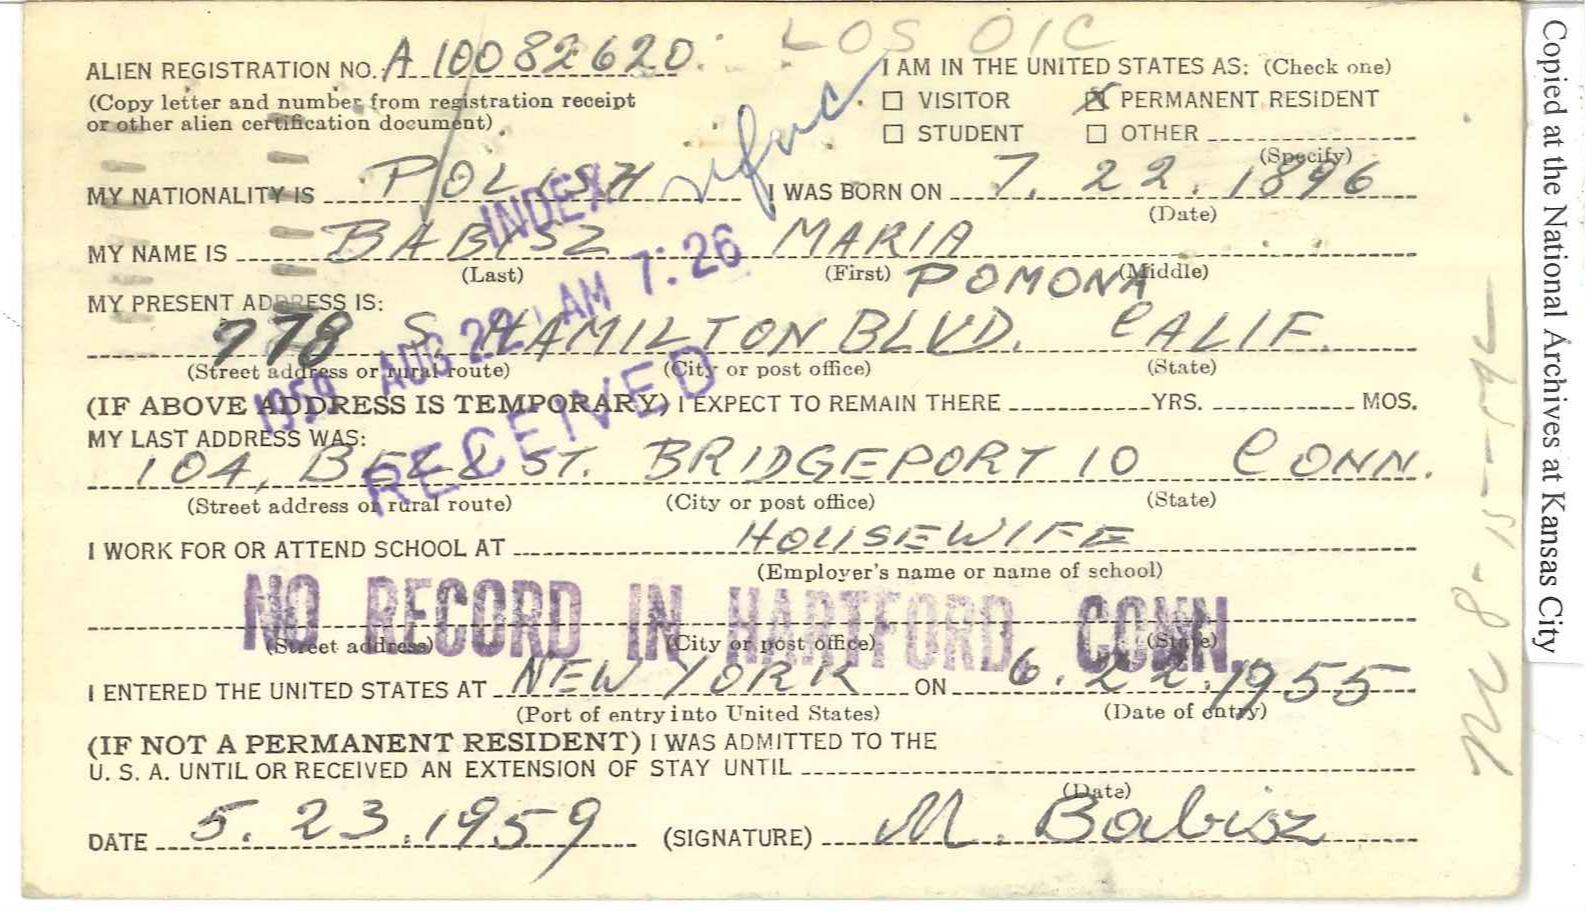 LOS OIC
ALIEN REGISTRATION NO. A 10082620
I AM IN THE UNITED STATES AS: (Check one)
(Copy letter and number from registration receipt
or other alien certification document)
☐ VISITOR ☒ PERMANENT RESIDENT
☐ STUDENT ☐ OTHER
(Specify)
MY NATIONALITY IS POLISH I WAS BORN ON 7. 22. 1896
(Date)
INDEX
MY NAME IS BABISZ MARIA
(Last) (First) (Middle)
POMONA
MY PRESENT ADDRESS IS:
778 S. HAMILTON BLVD. CALIF.
(Street address or rural route) (City or post office) (State)
1959 AUG 22 AM 7:26
RECEIVED
(IF ABOVE ADDRESS IS TEMPORARY) I EXPECT TO REMAIN THERE YRS. MOS.
MY LAST ADDRESS WAS:
104, BELL ST. BRIDGEPORT 10 CONN.
(Street address or rural route) (City or post office) (State)
I WORK FOR OR ATTEND SCHOOL AT HOUSEWIFE
(Employer's name or name of school)
NO RECORD IN HARTFORD, CONN
(Street address) (City or post office) (State)
I ENTERED THE UNITED STATES AT NEW YORK ON 6. 22. 1955
(Port of entry into United States) (Date of entry)
(IF NOT A PERMANENT RESIDENT) I WAS ADMITTED TO THE
U. S. A. UNTIL OR RECEIVED AN EXTENSION OF STAY UNTIL
(Date)
DATE 5. 23. 1959 (SIGNATURE) M. Babisz
Copied at the National Archives at Kansas City